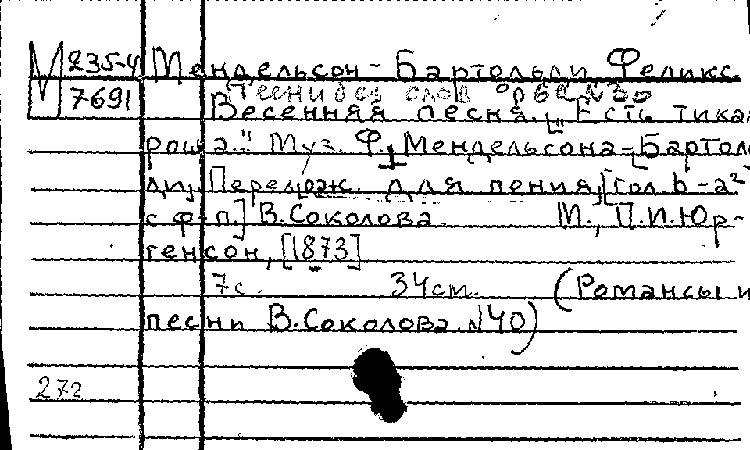 М 235-4 Мендельсон-Бартольди Феликс.
М 7691 Песни без слов ор. 62 №30
Весенняя песня. „Есть тихая
роща." Муз. Ф. Мендельсона-Бартоль
ди. Перелож. для пения [гол. b-a²
с ф-п.] В. Соколова. М., П.И. Юр-
генсон, [1873]
7с. 34см. (Романсы и
песни В. Соколова. №40)
272